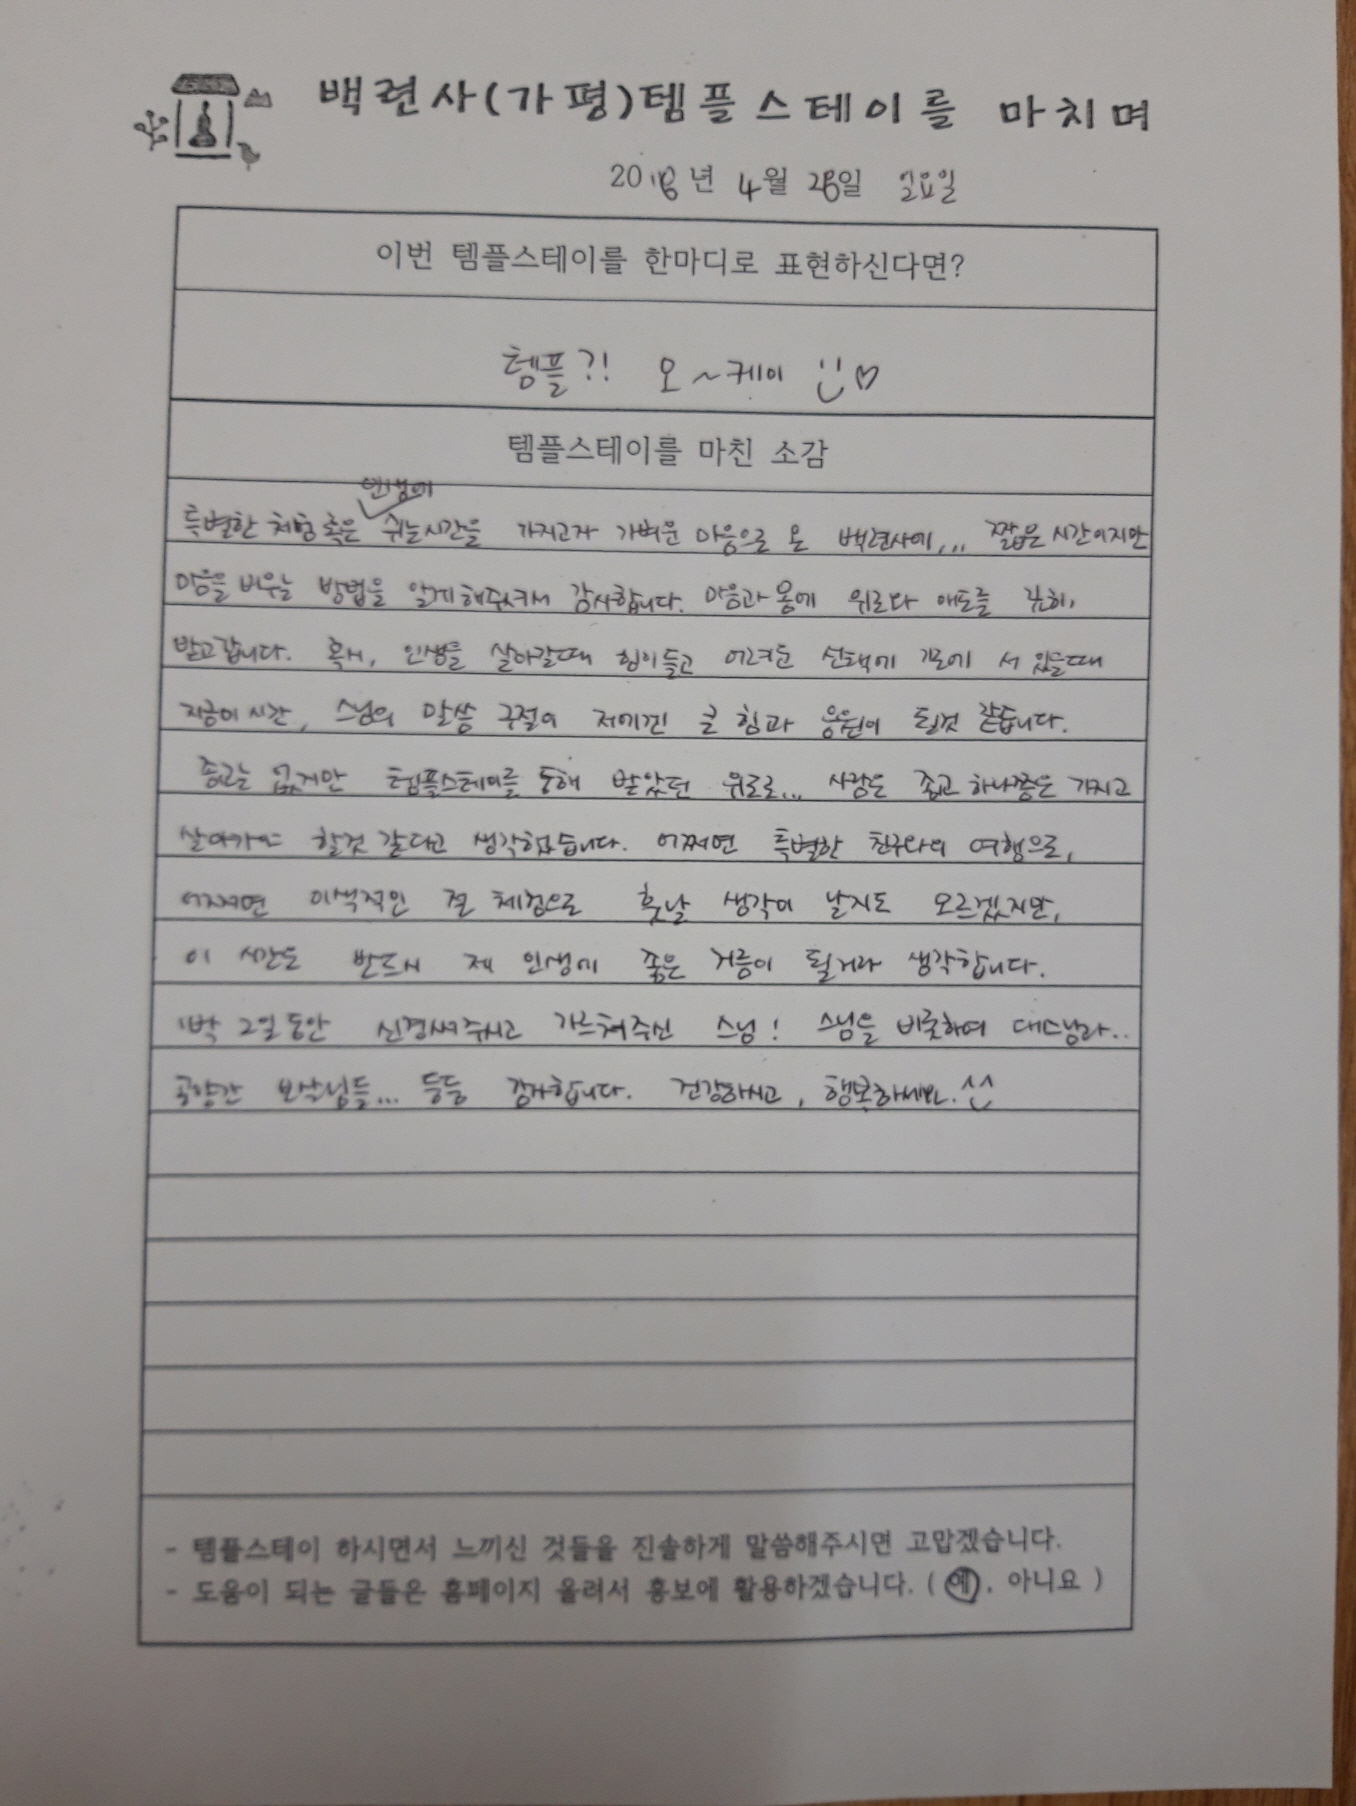 백련사(가평)템플스테이를 마치며
2018년 4월 28일 일요일
이번 템플스테이를 한마디로 표현하신다면?
템플?! 오~케이
템플스테이를 마친 소감
인생에
특별한 체험 혹은 쉬는시간을 가지고자 가벼운 마음으로 온 백련사에... 짧은 시간이지만
마음을 비우는 방법을 알게해주셔서 감사합니다. 마음과 몸에 위로와
받고갑니다. 혹시, 인생을 살아갈때 힘이들고 어려운 선택에 기로에 서 있을때
지금이 시간, 스님의 말씀 구절이 저에겐 큰 힘과 응원이 될것 같습니다.
종교는 없지만 템플스테이를 통해 받았던 위로로... 사람은 종교 하나쯤은 가지고
살아가야 할것 같다고 생각했습니다. 어쩌면 특별한 친구와의 여행으로,
어쩌면 이색적인 절 체험으로 훗날 생각이 날지도 모르겠지만,
이 시간도 반드시 제 인생에 좋은 거름이 될거라 생각합니다.
1박 2일동안 신경써주시고 가르쳐주신 스님! 스님을 비롯하여 대스님과..
공양간 보살님들... 등등 감사합니다. 건강하시고, 행복하세요. ^^
- 템플스테이 하시면서 느끼신 것들을 진솔하게 말씀해주시면 고맙겠습니다.
- 도움이 되는 글들은 홈페이지 올려서 홍보에 활용하겠습니다. ( 예, 아니요 )